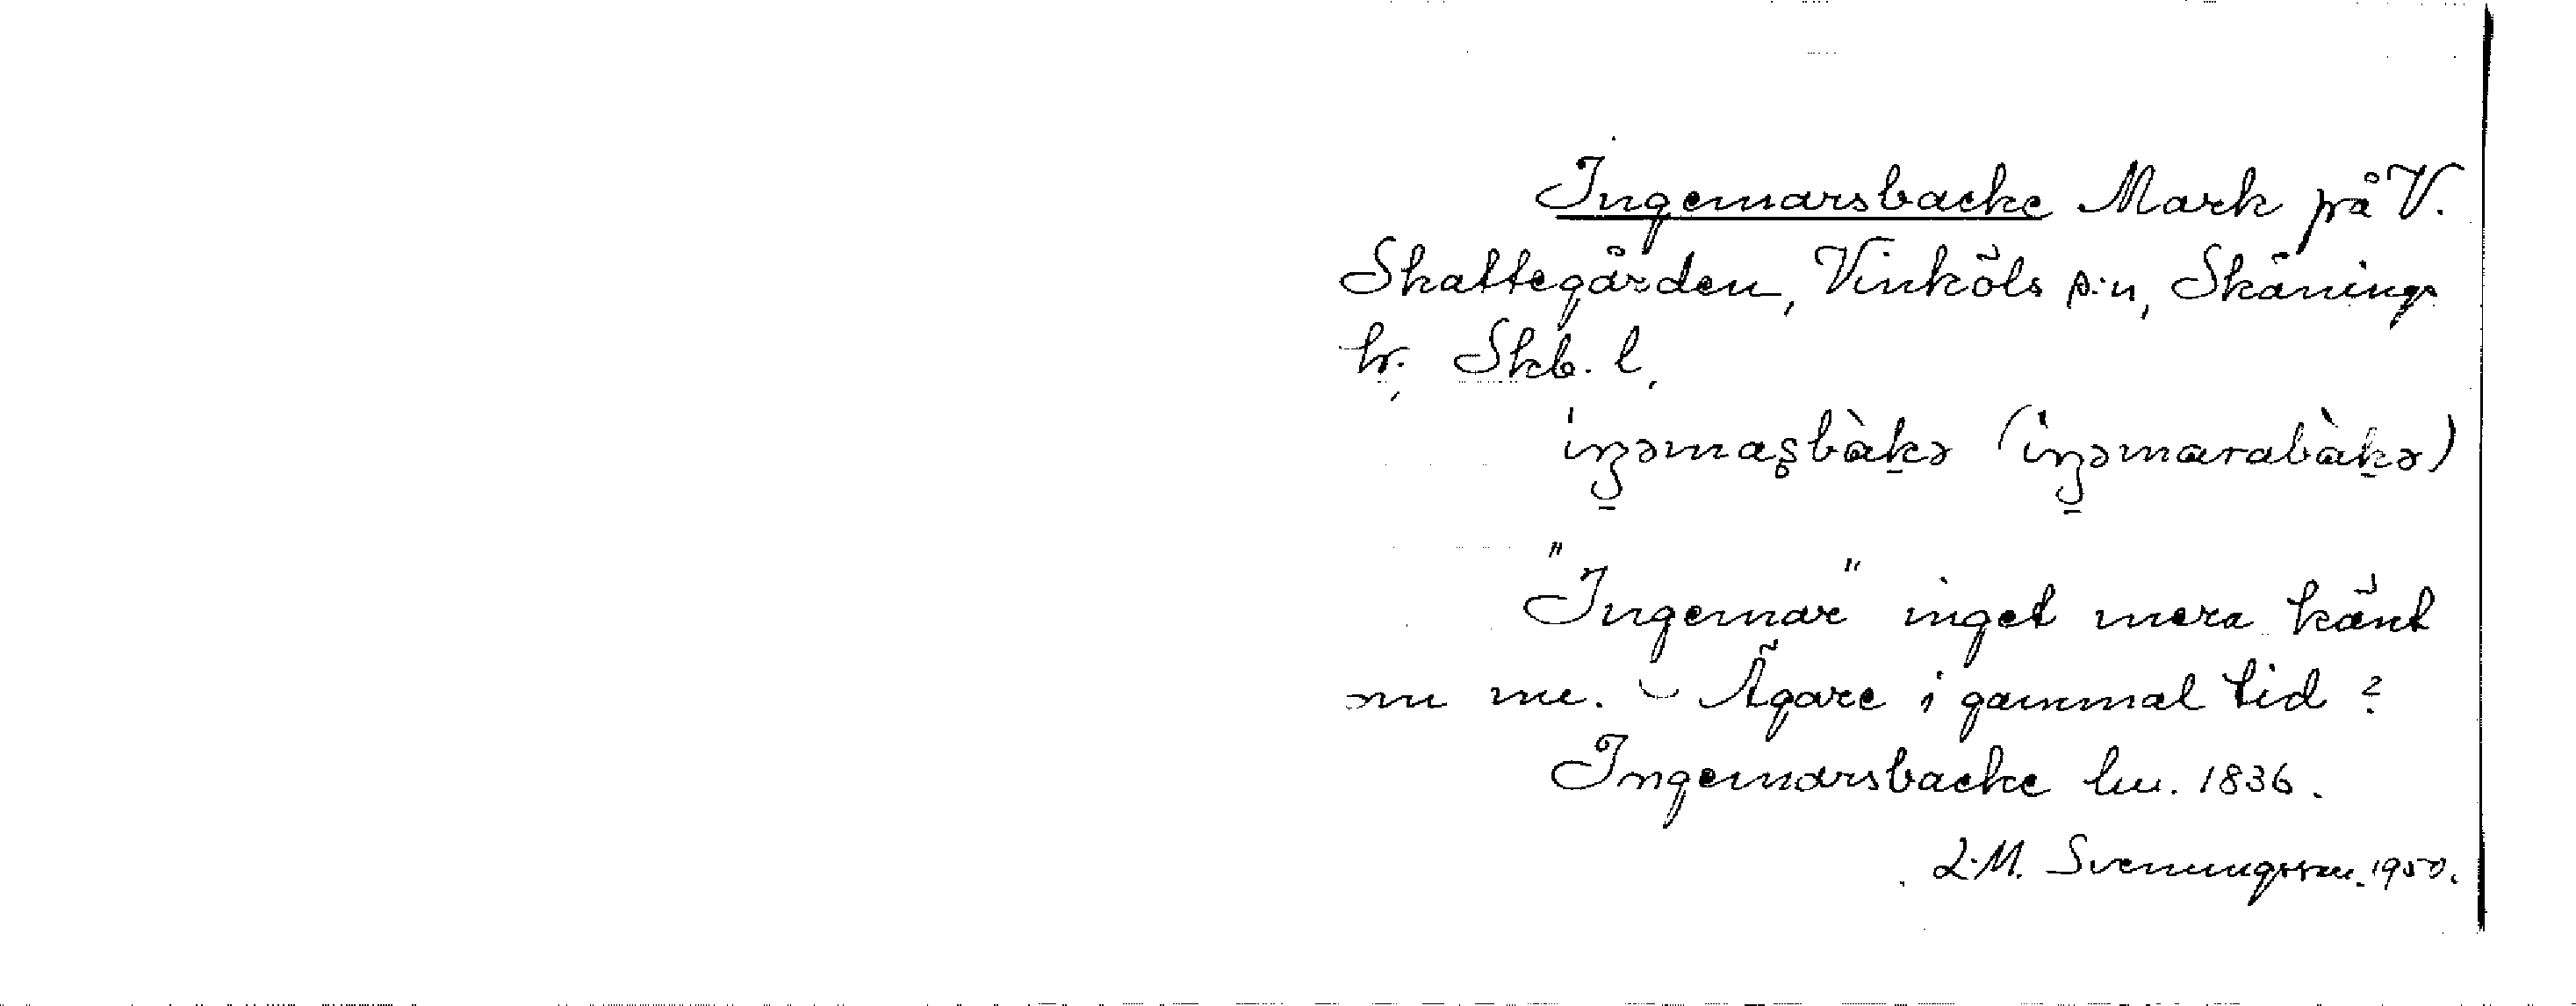 Ingemarsbacke Mark på V.
Skattegården, Vinköls s:n, Skånings
hr. Skb. l.
iŋəmaʂbàkə (iŋəmarabàkə)
"Ingemar" inget mera känt
nu me. - Ägare i gammal tid?
Ingemarsbacke lm. 1836.
L.M. Svenungsson. 1950.